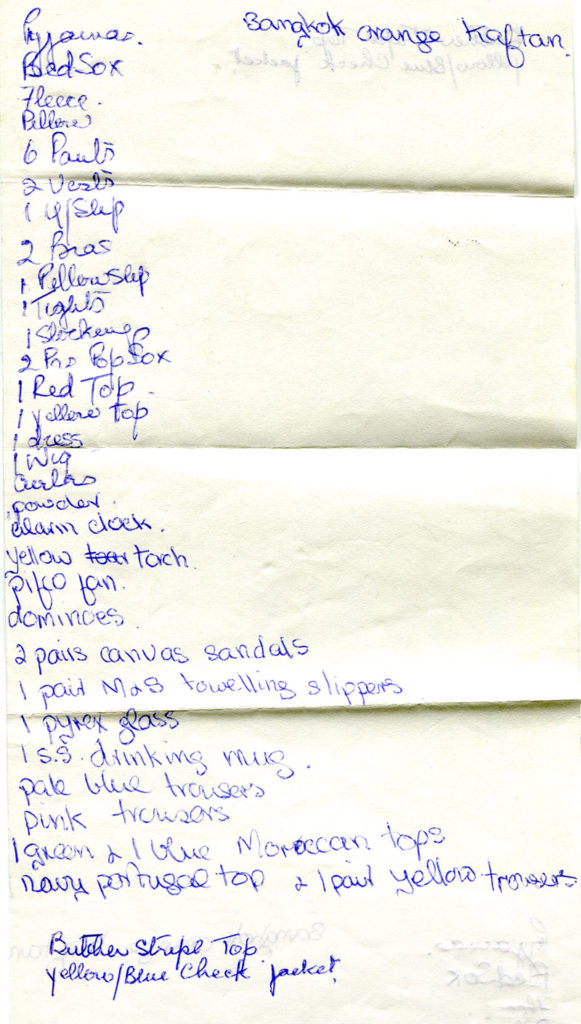 Bangkok orange Kaftan.
Pyjamas.
BedSox
Fleece.
Pillow
6 Pants
2 Vests
1 U/Slip
2 Bras
1 Pillowslip
1 Tights
1 Stockings
2 Prs PopSox
1 Red Top.
1 yellow top
1 dress
1 Wig
Curlers
powder.
alarm clock.
yellow torch.
pifco fan.
dominoes.
2 pairs canvas sandals
1 pair M&S towelling slippers
1 pyrex glass
1 s.s. drinking mug.
pale blue trousers
pink trousers
1 green & 1 blue Moroccan tops
navy portugal top & 1 pair yellow trousers
Butcher Stripe Top
yellow/Blue Check jacket.